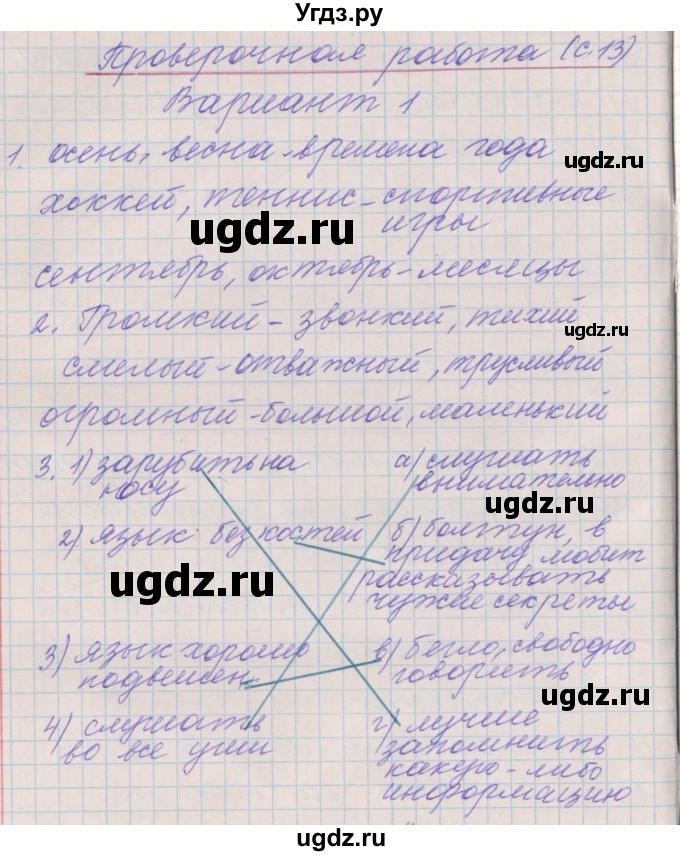 Угдз.ру
Проверочная работа (с.13)
Вариант 1
1. осень, весна - времена года
ugdz.ru
хоккей, теннис - спортивные
игры
ugdz.ru
сентябрь, октябрь - месяцы
2. Громкий - звонкий, тихий
ugdz.ru
смелый - отважный, трусливый
огромный - большой, маленький
3. 1) зарубить на
носу
а) слушать
внимательно
ugdz.ru
2) язык без костей
б) болтун, в
придачу любит
рассказывать
чужие секреты
ugdz.ru
3) язык хорошо
подвешен
в) бегло, свободно
говорить
ugdz.ru
4) слушать
во все уши
г) лучше
запомнить
какую-либо
информацию
ugdz.ru
ugdz.ru